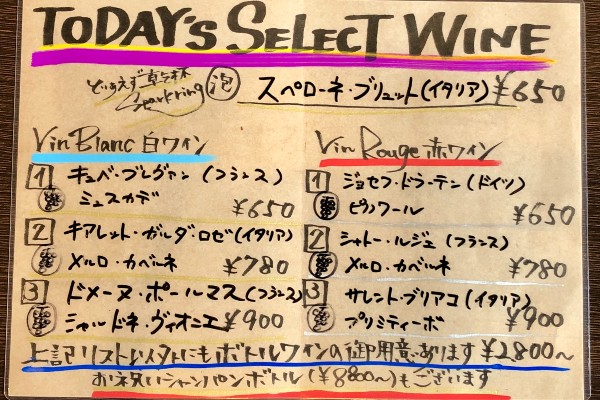 TODAY's SELECT WINE
とりあえず一杯
Sparkring
泡 スペローネ・ブリュット(イタリア) ¥650
Vin Blanc 白ワイン
1 キュベ・プレヴァン (フランス)
ミュスカデ ¥650
2 キアレット・ガルダ・ロゼ(イタリア)
メルロ・カベルネ ¥780
3 ドメーヌ・ポールマス(フランス)
シャルドネ・ヴィオニエ ¥900
Vin Rouge 赤ワイン
1 ジョセフ・ドラーテン(ドイツ)
ピノノワール ¥650
2 シャトー・ルジュ (フランス)
メルロ・カベルネ ¥780
3 サレント・ブリアコ(イタリア)
プリミティーボ ¥900
上記リスト以外にもボトルワインの御用意あります ¥2800〜
お祝いシャンパンボトル(¥8800〜)もございます